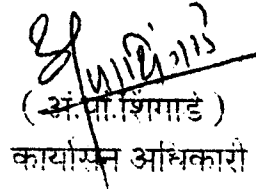 ( अं.पां.शिंगाडे )
कार्यासन अधिकारी